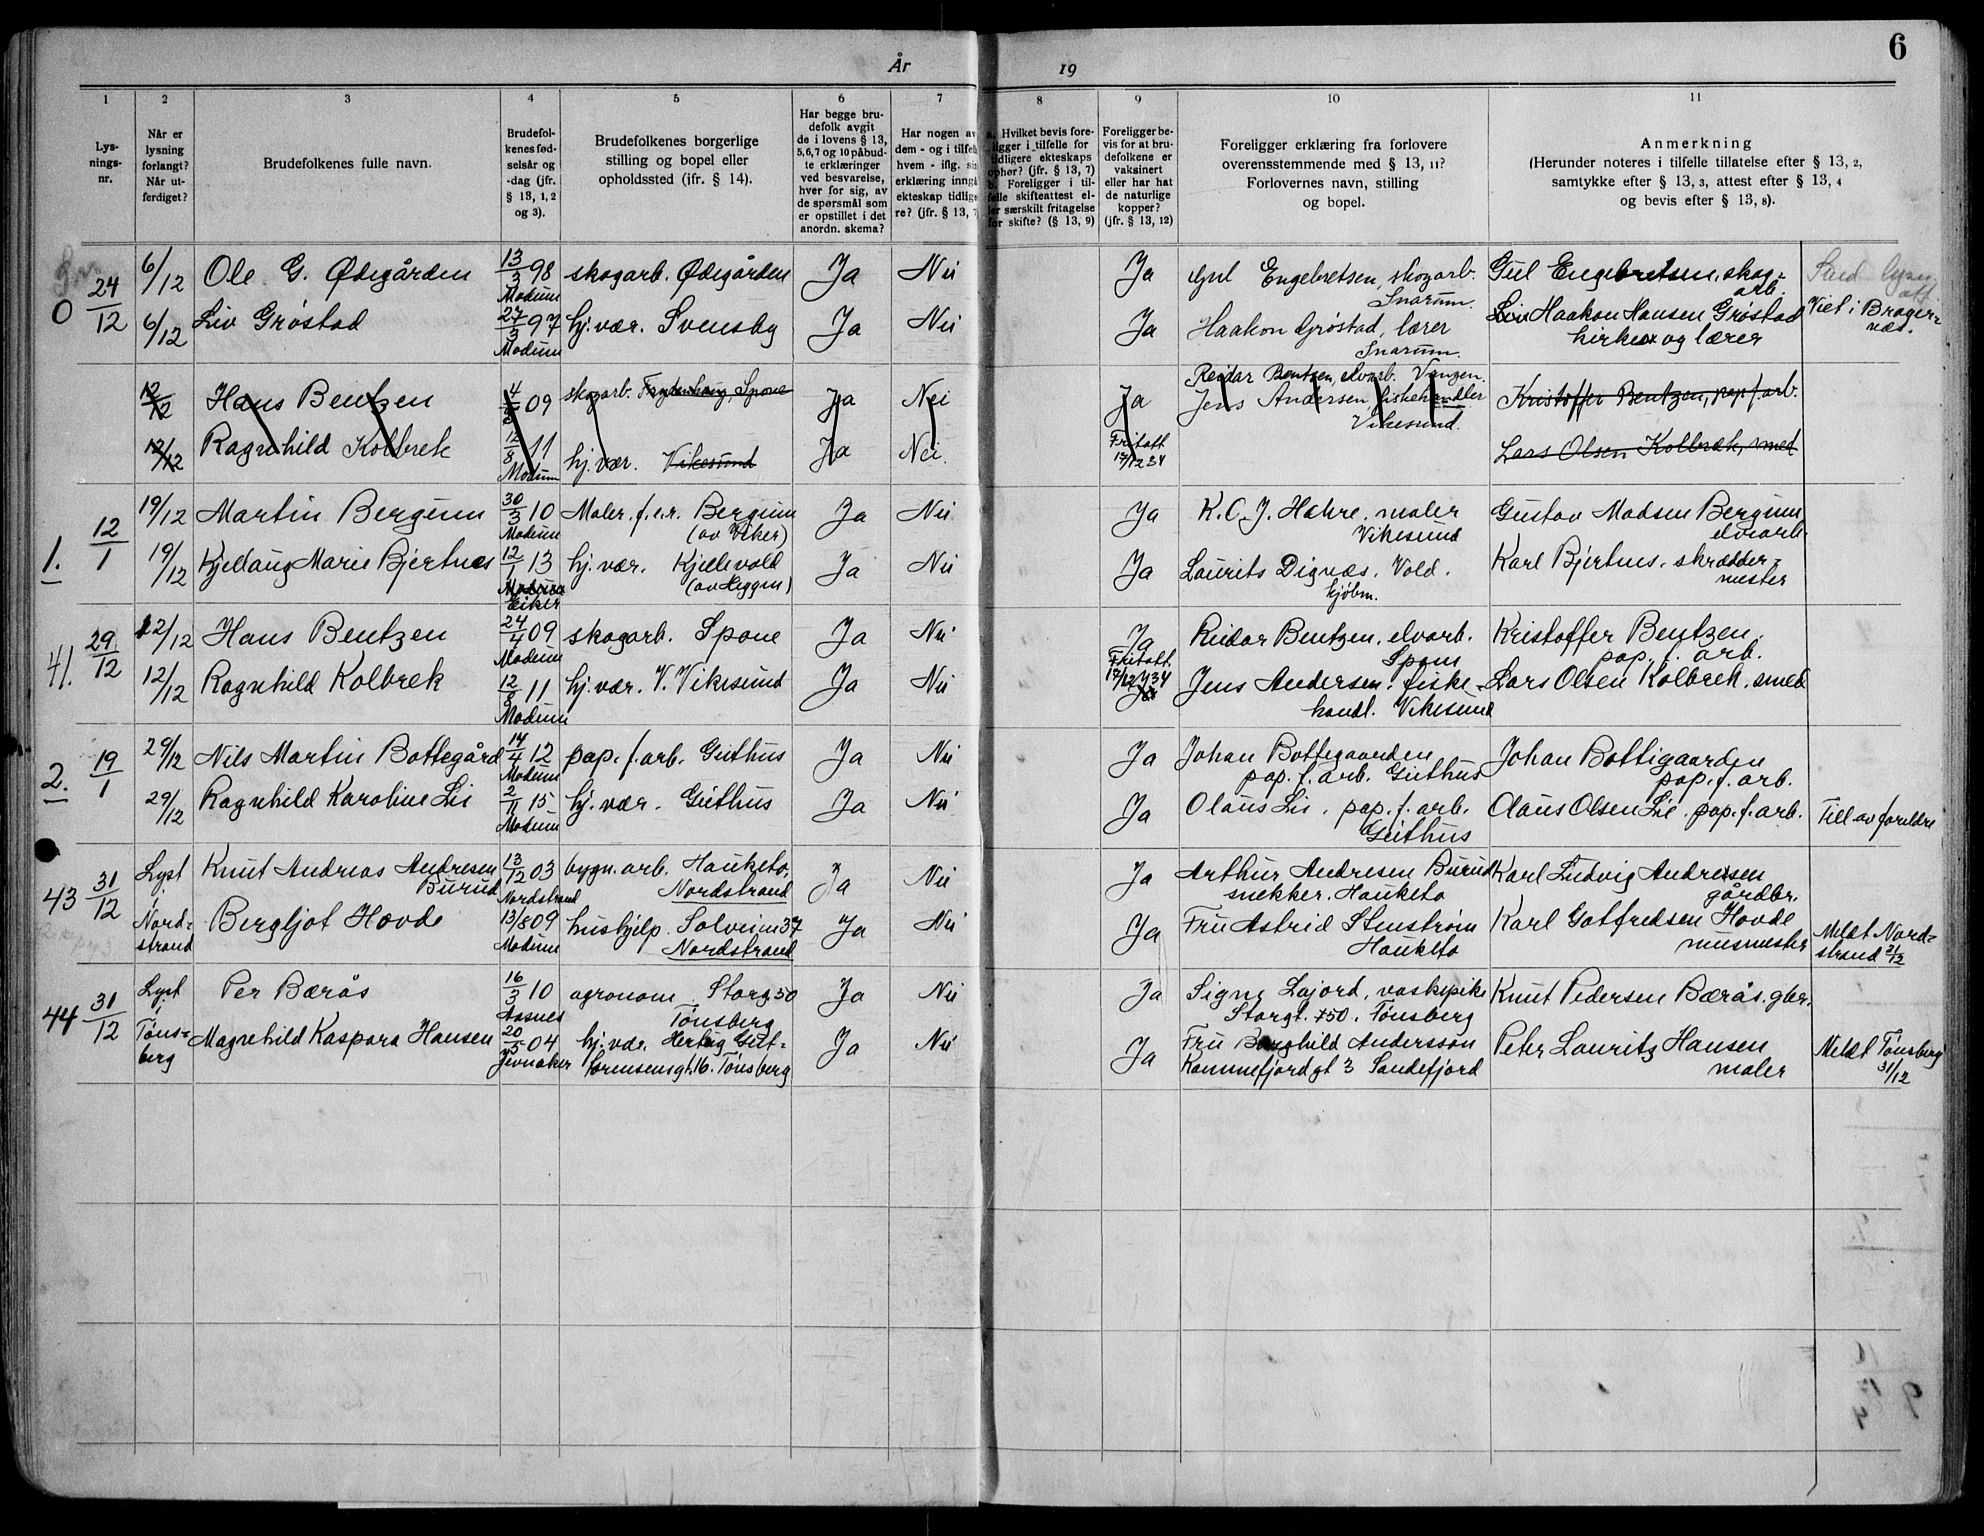 År 19
6
1 2 3 4 5 6 7 8 9 10 11
Lysningsnr.
Når er lysning forlangt? Når utferdiget?
Brudefolkenes fulle navn.
Brudefolkenes fødselsår og -dag (jfr. § 13, 1, 2 og 3).
Brudefolkenes borgerlige stilling og bopel eller opholdssted (ifr. § 14).
Har begge brudefolk avgit de i lovens § 13, 5, 6, 7 og 10 påbudte erklæringer ved besvarelse, hver for sig, av de spørsmål som er opstillet i det anordn. skema?
Har nogen av dem - og i tilfelle hvem - iflg. sin erklæring inngå ekteskap tidlige re? (jfr. § 13, 7
a. Hvilket bevis foreligger i tilfelle for tidligere ekteskaps ophør? (jfr. § 13, 7) b. Foreligger i tilfelle skifteattest eller særskilt fritagelse for skifte? (§ 13, 9)
Foreligger bevis for at brudefolkene er vaksinert eller har hat de naturlige kopper? (jfr. § 13, 12)
Foreligger erklæring fra forlovere overensstemmende med § 13, 11? Forlovernes navn, stilling og bopel.
Anmerkning (Herunder noteres i tilfelle tillatelse efter § 13, 2, samtykke efter § 13, 3, attest efter § 13, 4 og bevis efter § 13, 8).
0 24/12 6/12 Ole G. Ødegården 13/3 98 Modum skogarb. Ødegården Ja Nei Ja Gul Engebretsen, skogarb. Snarum. Gul Engebretsen, skogarb.
6/12 Liv Grøstad 27/3 97 Modum hj. vær. Svensby Ja Nei Ja Haakon Grøstad, lærer Snarum. Liv Haakon Hansen Grøstad kirkes. og lærer Viet i Bragernæs.
12/12 Hans Bentzen 09 skogarb. Spone Ja Nei Ja Reidar Bentzen, elvarb. Vangen. Kristoffer Bentzen, pap.f.arb.
12/12 Ragnhild Kolbrek 12/8 11 Modum hj. vær. Vikesund Ja Nei Fritatt 17/12 34 Jens Andersen, fiskehandler Vikesund. Lars Olsen Kolbræk, smed
1. 12/1 19/12 Martin Bergum 30/3 10 Modum Maler. f.e.r. Bergum (av Viker) Ja Nei Ja K. O. J. Hæhre, maler Vikesund Gustav Madsen Bergum elvearb.
19/12 Kjellaug Marie Bjertnes 12/1 13 Modum Eiker hj. vær. Kjellevold (av Heggen) Ja Nei Ja Laurits Dignæs, Vold. kjøbm. Karl Bjertnes, skræddermester
41. 29/12 12/12 Hans Bentzen 24/4 09 Modum skogarb. Spone Ja Nei Ja Reidar Bentzen, elvarb. Spone Kristoffer Bentzen, pap. f. arb.
12/12 Ragnhild Kolbrek 12/8 11 Modum hj. vær. V. Vikesund Ja Nei Fritatt. 17/12 34 Ja Jens Andersen, fiskehandl. Vikesund Lars Olsen Kolbrek, smed
2. 19/1 29/12 Nils Martin Bottegård 14/4 12 Modum pap. f. arb. Geithus Ja Nei Ja Johan Bottegaarden pap. f. arb. Geithus Johan Bottigaarden pap. f. arb.
29/12 Ragnhild Karoline Lie 2/11 15 Modum hj. vær. Geithus Ja Nei Ja Olaus Lie, pap. f. arb. Geithus Olaus Olsen Lie, pap. f. arb. Till av foreldre
43 31/12 Lyst i Nordstrand Knut Andreas Andresen Burud 13/12 03 Nordstrand bygn. arb. Hauketo, Nordstrand Ja Nei Ja Arthur Andresen Burud snekker, Hauketo Karl Ludvig Andresen gårdbr.
Bergljot Hovde 13/8 09 Modum hushjelp Solveien 37 Nordstrand Ja Nei Ja Fru Astrid Stenstrøm Hauketo Karl Gotfredsen Hovde murmester Meldt Nordstrand 31/12
44 31/12 Lyst i Tønsberg Per Bærås 16/3 10 Aasnes agronom Storg 50 Tønsberg Ja Nei Ja Signe Lajord, vaskepike Storgt. 50, Tønsberg Knut Pedersen Bærås, gbr.
Magnhild Kaspara Hansen 20/5 04 Jevnaker hj. vær. Hertug Guttormsensgt. 16. Tønsberg Ja Nei Ja Fru Borghild Andersson Kamnefjordgt 3 Sandefjord Peter Lauritz Hansen maler Meldt Tønsberg 31/12